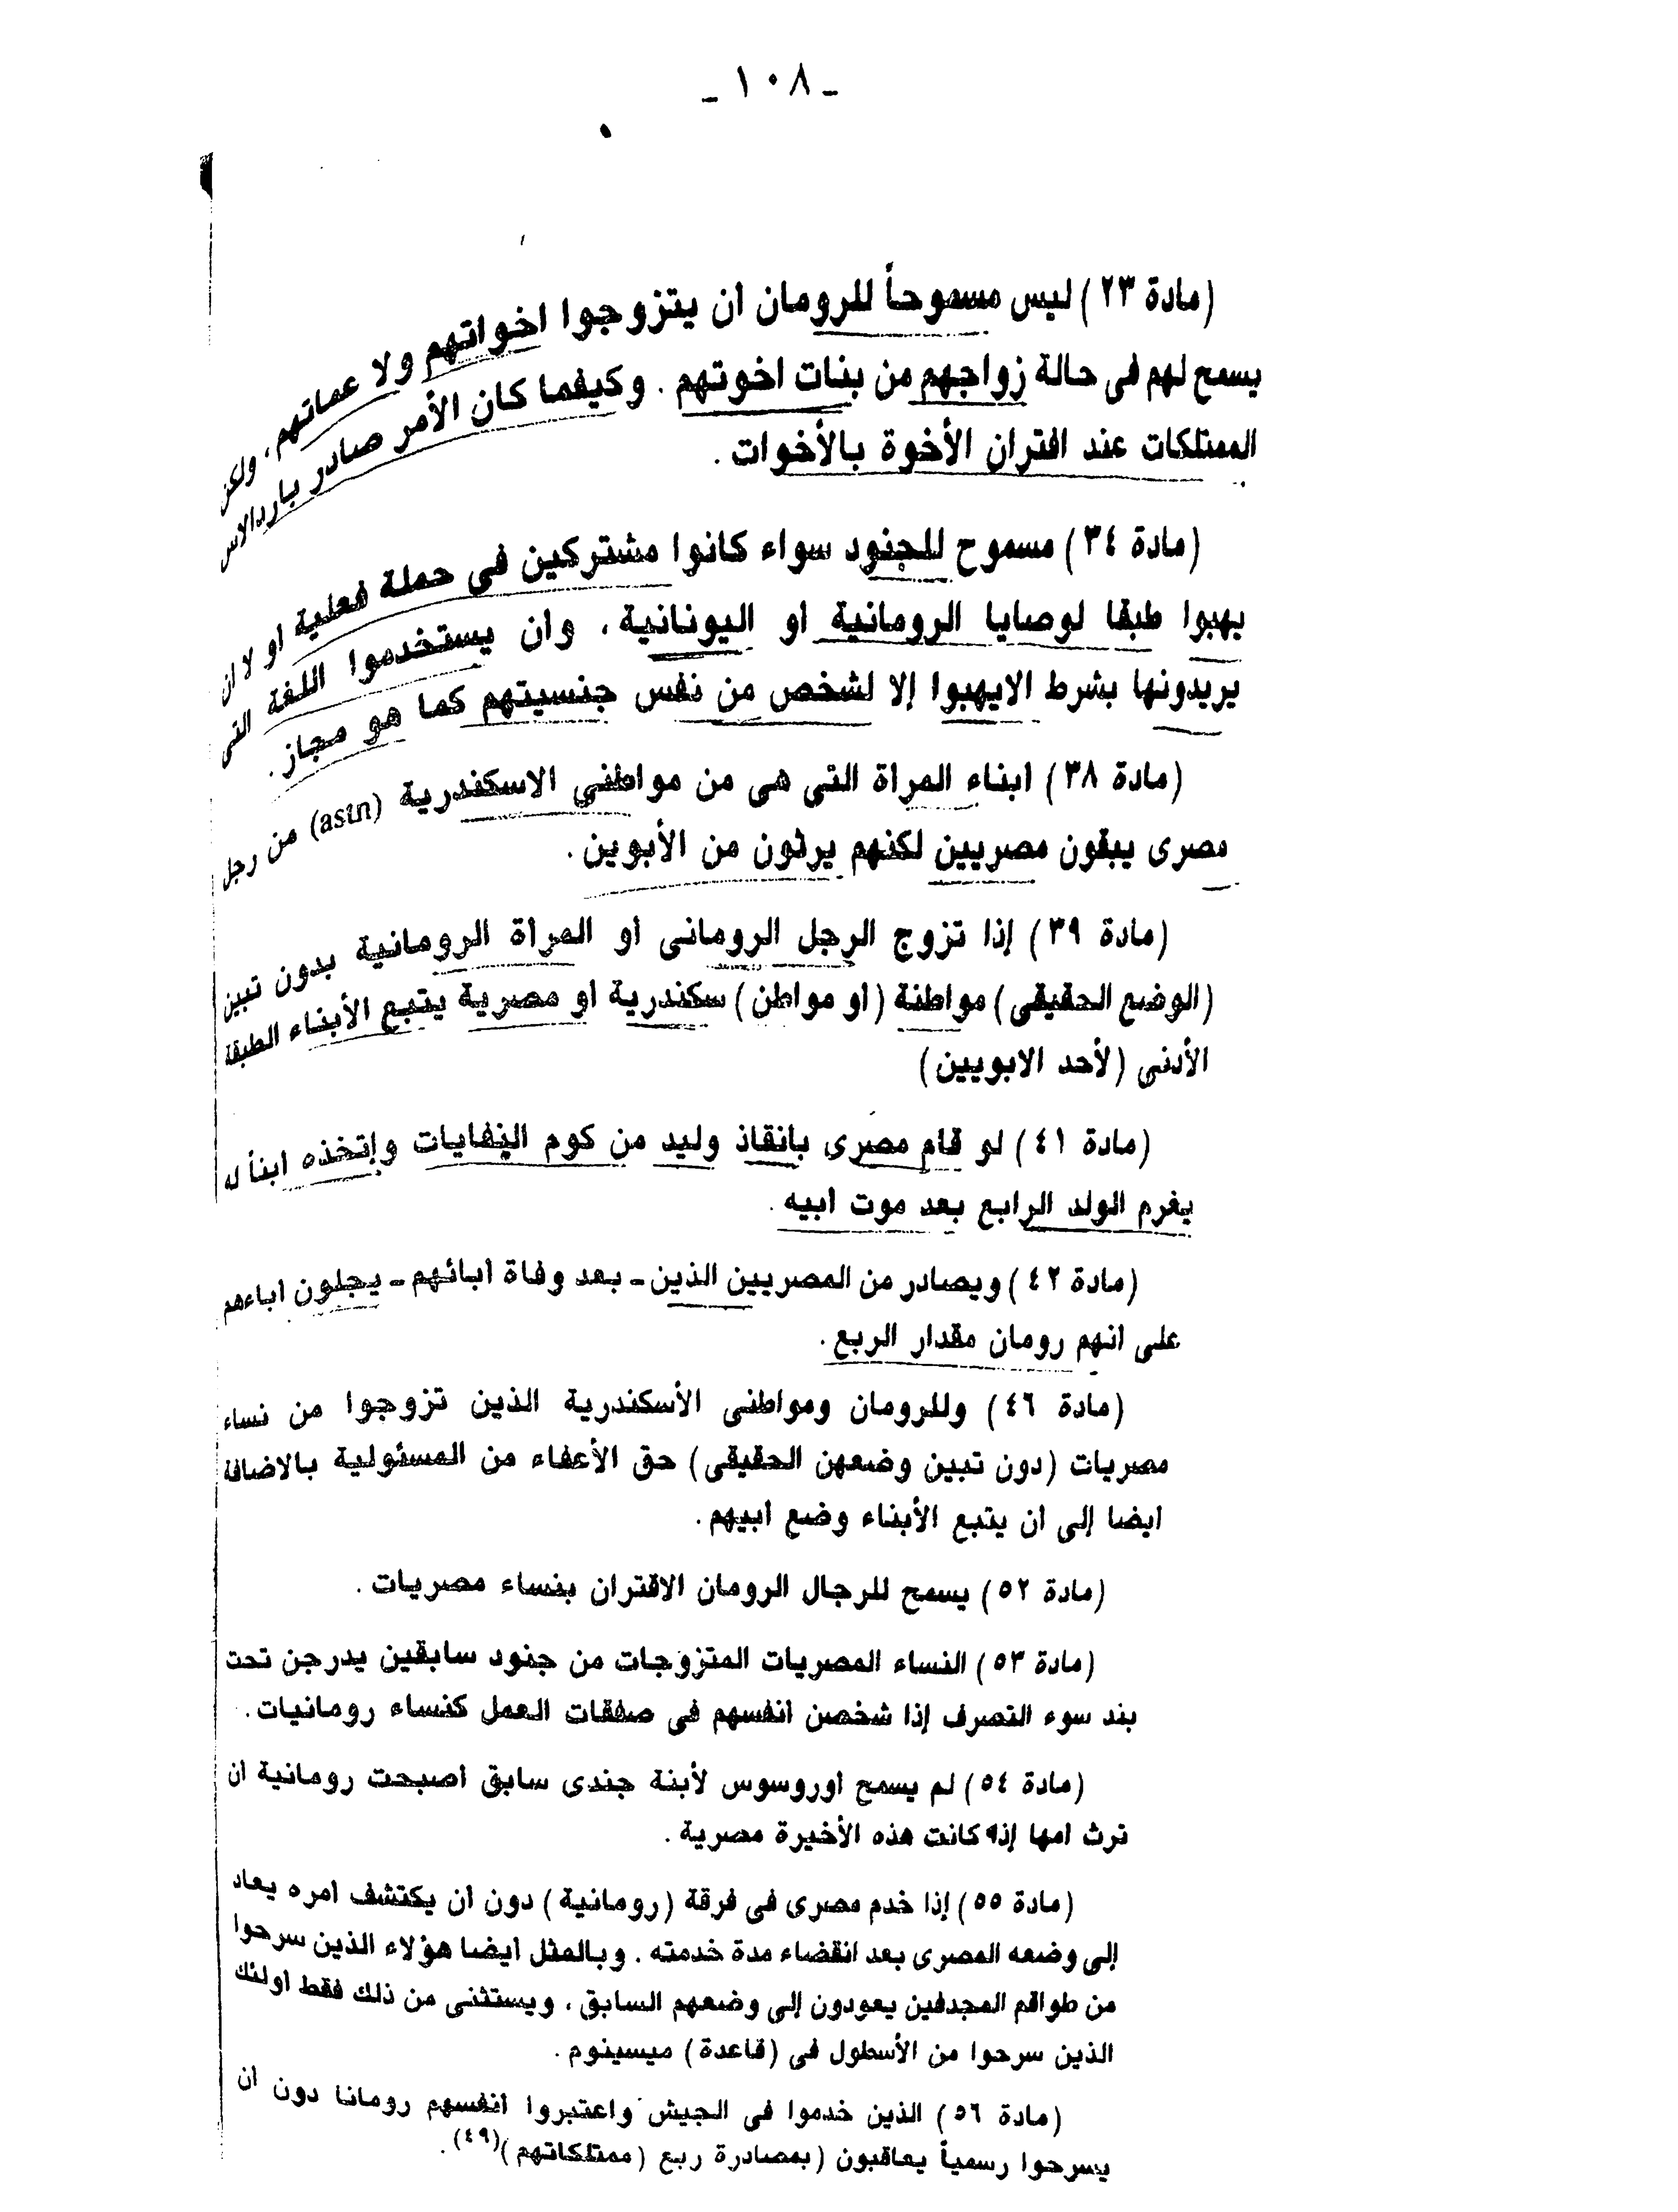 ـ ١٠٨ ـ
(مادة ٢٣) ليس مسموحاً للرومان ان يتزوجوا اخواتهم ولا عماتهم ، ولكن
يسمح لهم فى حالة زواجهم من بنات اخوتهم . وكيفما كان الأمر صادر بارد الاس
الممتلكات عند اقتران الأخوة بالأخوات .
(مادة ٣٤) مسموح للجنود سواء كانوا مشتركين فى حملة فعلية او لا ان
يهبوا طبقا لوصايا الرومانية او اليونانية ، وان يستخدموا اللغة التى
يريدونها بشرط الايهبوا إلا لشخص من نفس جنسيتهم كما هو مجاز .
(مادة ٣٨) ابناء المراة التى هى من مواطنى الاسكندرية (astn) من رجل
مصرى يبقون مصريين لكنهم يرثون من الأبوين .
(مادة ٣٩) إذا تزوج الرجل الرومانى او المراة الرومانية بدون تبين
(الوضع الحقيقى) مواطنة (او مواطن) سكندرية او مصرية يتبع الأبناء الطبقة
الأدنى (لأحد الابويين)
(مادة ٤١) لو قام مصرى بانقاذ وليد من كوم النفايات وإتخذه ابنأ له
يغرم الولد الرابع بعد موت ابيه .
(مادة ٤٢) ويصادر من المصريين الذين ـ بعد وفاة ابائهم ـ يجلون اباءهم
على انهم رومان مقدار الربع .
(مادة ٤٦) وللرومان ومواطنى الأسكندرية الذين تزوجوا من نساء
مصريات (دون تبين وضعهن الحقيقى) حق الأعفاء من المسئولية بالاضافة
ايضا إلى ان يتبع الأبناء وضع ابيهم .
(مادة ٥٢) يسمح للرجال الرومان الاقتران بنساء مصريات .
(مادة ٥٣) النساء المصريات المتزوجات من جنود سابقين يدرجن تحت
بند سوء التصرف إذا شخصن انفسهم فى صفقات العمل كنساء رومانيات .
(مادة ٥٤) لم يسمح اوروسوس لأبنة جندى سابق اصبحت رومانية ان
ترث امها إذا كانت هذه الأخيرة مصرية .
(مادة ٥٥) إذا خدم مصرى فى فرقة (رومانية) دون ان يكتشف امره يعاد
إلى وضعه المصرى بعد انقضاء مدة خدمته . وبالمثل ايضا هؤلاء الذين سرحوا
من طواقم المجدفين يعودون إلى وضعهم السابق ، ويستثنى من ذلك فقط اولئك
الذين سرحوا من الأسطول فى (قاعدة) ميسينوم .
(مادة ٥٦) الذين خدموا فى الجيش واعتبروا انفسهم رومانا دون ان
يسرحوا رسمياً يعاقبون (بمصادرة ربع (ممتلكاتهم)(٤٩) .